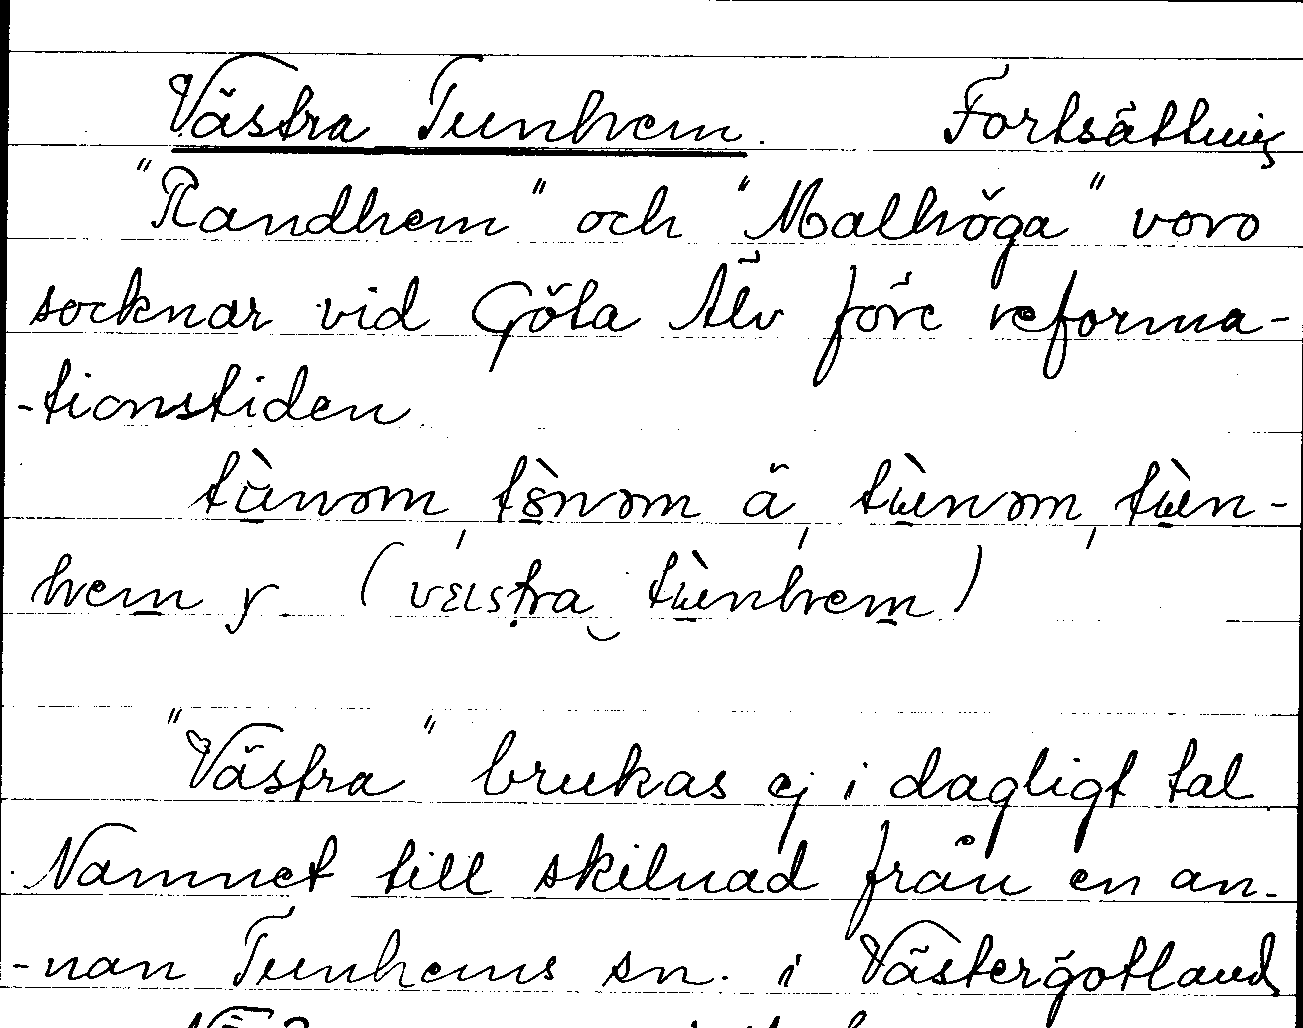 Västra Tunhem. Fortsättning
"Randhem" och "Malhöga" voro
socknar vid Göta Älv före reforma-
-tionstiden
tùnəm, tö̀nəm ä, tùenəm, tùen-
hem y (vɛɪstra tùenhem)
"Västra" brukas ej i dagligt tal.
Namnet till skilnad från en an-
-nan Tunhems sn. i Västergötland